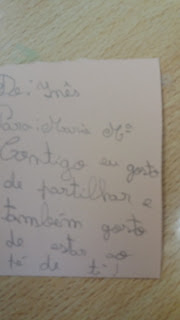 De: Inês
Para: Maria Mª
Contigo eu gosto
de partilhar e
também gosto
de estar ao
pé de ti!